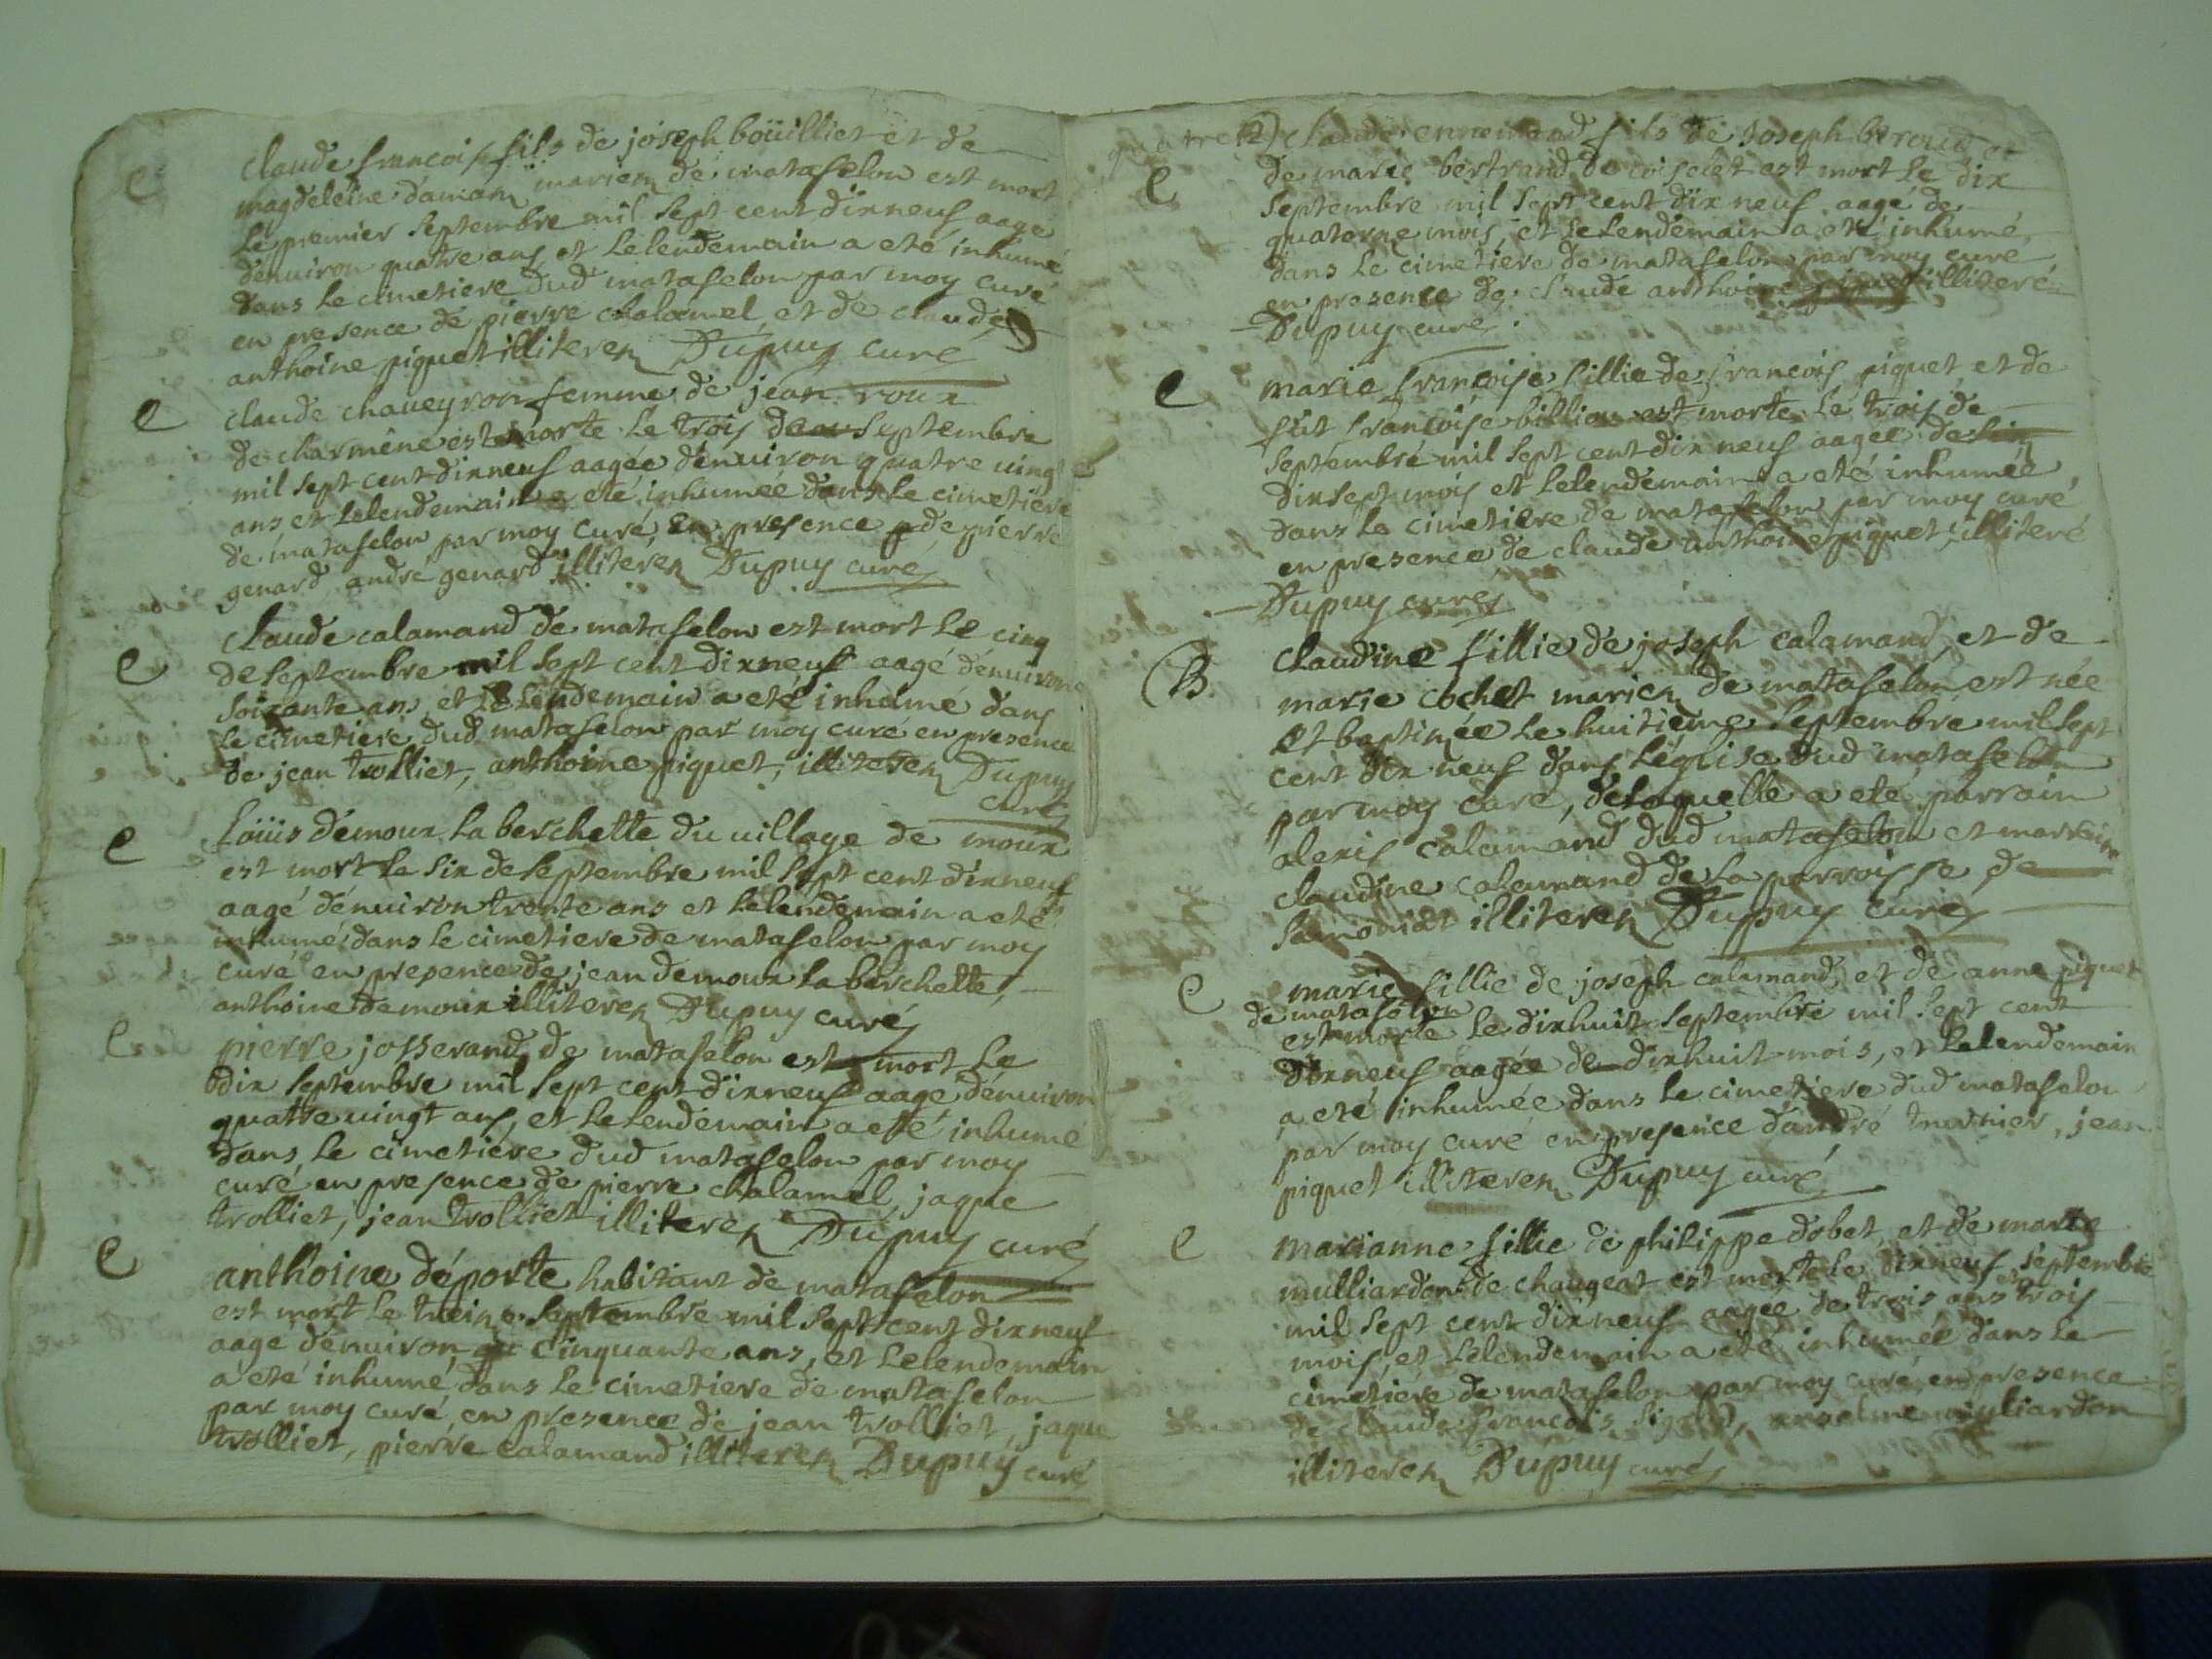 e
claude francois fils de joseph boüilliet et de
magdeleine damans mariez de matafelon est mort
le premier septembre mil sept cent dixneuf aage
denuiron quatre ans et lelendemain a eté inhumé
dans le cimetiere dud matafelon par moy curé
en presence de pierre chalamel et de claude
anthoine piquet illiterez Dupuy curé
e
claude chaueyron femme de jean roux
de charmêne est morte le trois septembre
mil sept cent dixneuf aagée denuiron quatre uingt
ans et lelendemain a eté inhumée dans le cimetiere
de matafelon par moy curé, en presence de pierre
genard andré genard illiterez Dupuy curé
e
claude calamand de matafelon est mort le cinq
de septembre mil sept cent dixneuf aagé denuiron
soixante ans, et le lendemain a eté inhumé dans
le cimetiere dud matafelon par moy curé en presence
de jean trolliet, anthoine piquet, illiterez Dupuy
curé
e
Loüis demoux la berchette du uillage de moux
est mort le six de septembre mil sept cent dixneuf
aagé denuiron trente ans et lelendemain a eté
inhumé dans le cimetiere de matafelon par moy
curé en presence de jean demoux la berchette,
anthoine demoux illiterez Dupuy curé
e
pierre josserand de matafelon est mort le
dix septembre mil sept cent dixneuf aage denuiron
quatre uingt ans, et lelendemain a eté inhumé
dans le cimetiere dud matafelon par moy
curé en presence de pierre chalamel, jaque
trolliet, jean trolliet illiterez Dupuy curé
e
anthoine déporte habitant de matafelon
est mort le treize septembre mil sept cent dixneuf
aage denuiron cinquante ans, et lelendemain
a eté inhumé dans le cimetiere de matafelon
par moy curé, en presence de jean trolliet, jaque
trolliet, pierre calamand illiterez Dupuy curé
claude ennemond fils de Joseph et
e
de marie bertrand de est mort le dix
septembre mil sept cent dix neuf aagé de
quatorze mois et lelendemain a eté inhumé
dans le cimetiere de matafelon par moy curé
en presence de claude anthoine piquet illiteré
Dupuy curé
e
marie françoise fillie de françois piquet et de
fût françoise billion est morte le trois de
septembre mil sept cent dix neuf aagée de
dixsept mois et lelendemain a eté inhumée
dans le cimetiere de matafelon par moy curé
en presence de claude anthoine piquet illiteré
Dupuy curé
B
claudine fillie de joseph calamand, et de
marie cochet mariez de matafelon est née
et baptizée le huitieme septembre mil sept
cent dix neuf dans léglise dud matafelon
par moy curé, delaquelle a eté parrain
alexis calamand dud matafelon et marreine
claudine calamand de la parroisse de
illiterez Dupuy curé
e
marie fillie de joseph calamand et de anne piquet
de matafelon
est morte le dixhuit septembre mil sept cent
dixneuf aagée de dixhuit mois, et lelendemain
a eté inhumée dans le cimetiere dud matafelon
par moy curé en presence dandré jean
piquet illiterez Dupuy curé
e
marianne fillie de philippe dobet, et de marie
mulliardon de chaugeat est morte le dixneuf septembre
mil sept cent dixneuf aagée de trois ans et trois
mois, et lelendemain a eté inhumée dans le
cimetiere de matafelon par moy curé en presence
de claude francois anselme muliardon
illiterez Dupuy curé